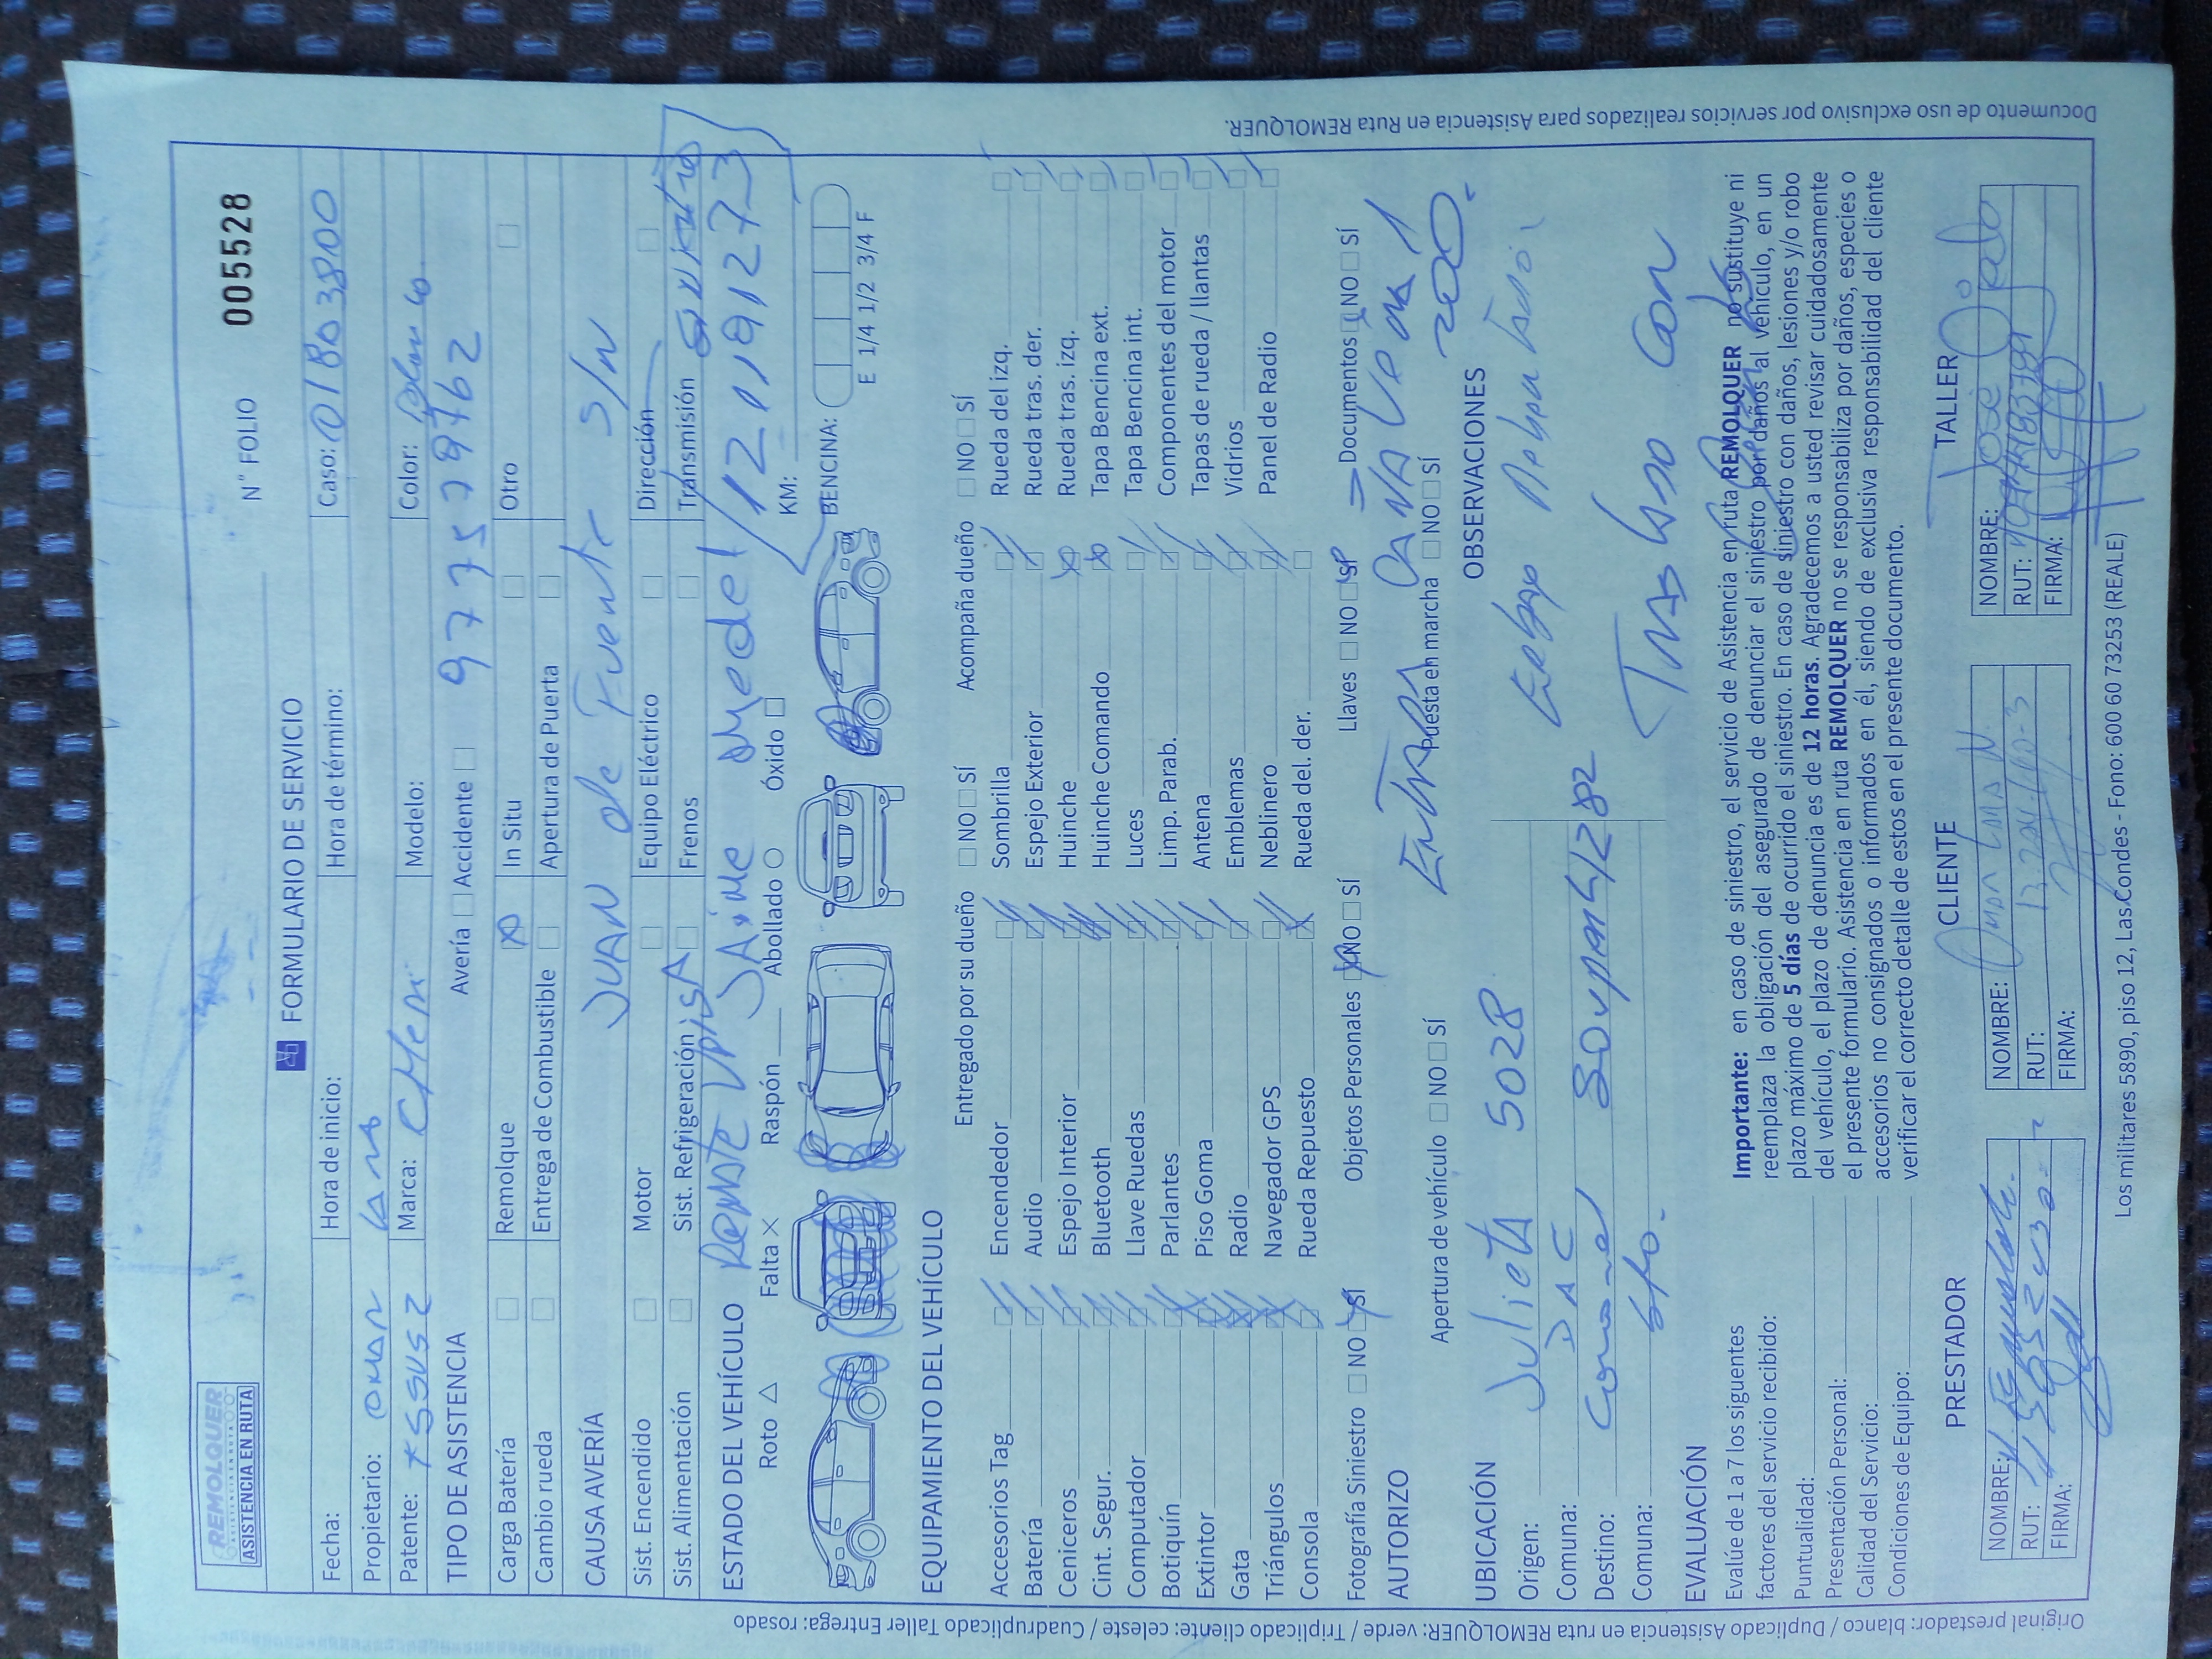 REMOLQUER
ASISTENCIA EN RUTA
N° FOLIO 005528
FORMULARIO DE SERVICIO
Fecha: Hora de inicio: Hora de término: Caso: 01803800
Propietario: Omar Lams
Patente: Marca: Chery Modelo: Color: Blanco
TIPO DE ASISTENCIA Avería Accidente
Carga Batería Remolque In Situ Otro
Cambio rueda Entrega de Combustible Apertura de Puerta
CAUSA AVERÍA Juan de Fuente S/N
Sist. Encendido Motor Equipo Eléctrico Dirección
Sist. Alimentación Sist. Refrigeración Frenos Transmisión
ESTADO DEL VEHÍCULO Jaime 12019127-3
Roto △ Falta × Raspón Abollado ○ Óxido □ KM:
BENCINA:
E 1/4 1/2 3/4 F
EQUIPAMIENTO DEL VEHÍCULO Entregado por su dueño NO SÍ Acompaña dueño NO SÍ
Accesorios Tag Encendedor Sombrilla Rueda del izq.
Batería Audio Espejo Exterior Rueda tras. der.
Ceniceros Espejo Interior Huinche Rueda tras. izq.
Cint. Segur. Bluetooth Huinche Comando Tapa Bencina ext.
Computador Llave Ruedas Luces Tapa Bencina int.
Botiquín Parlantes Limp. Parab. Componentes del motor
Extintor Piso Goma Antena Tapas de rueda / llantas
Gata Radio Emblemas Vidrios
Triángulos Navegador GPS Neblinero Panel de Radio
Consola Rueda Repuesto Rueda del. der.
Fotografía Siniestro NO SÍ Objetos Personales NO SÍ Llaves NO SÍ Documentos NO SÍ
AUTORIZO Apertura de vehículo NO SÍ Puesta en marcha NO SÍ
UBICACIÓN OBSERVACIONES
Origen: Julieta 5028
Comuna: PAC
Destino: Coronel Souper 4282
Comuna: Stgo.
Traslado con
EVALUACIÓN
Evalúe de 1 a 7 los siguientes
factores del servicio recibido:
Puntualidad:
Presentación Personal:
Calidad del Servicio:
Condiciones de Equipo:
Importante: en caso de siniestro, el servicio de Asistencia en ruta REMOLQUER no sustituye ni
reemplaza la obligación del asegurado de denunciar el siniestro por daños al vehículo, en un
plazo máximo de 5 días de ocurrido el siniestro. En caso de siniestro con daños, lesiones y/o robo
del vehículo, el plazo de denuncia es de 12 horas. Agradecemos a usted revisar cuidadosamente
el presente formulario. Asistencia en ruta REMOLQUER no se responsabiliza por daños, especies o
accesorios no consignados o informados en él, siendo de exclusiva responsabilidad del cliente
verificar el correcto detalle de estos en el presente documento.
PRESTADOR CLIENTE TALLER
NOMBRE: NOMBRE: Omar Lams N. NOMBRE: Jose Ojeda
RUT: RUT: RUT:
FIRMA: FIRMA: FIRMA:
Los militares 5890, piso 12, Las Condes - Fono: 600 60 73253 (REALE)
Original prestador: blanco / Duplicado Asistencia en ruta REMOLQUER: verde / Triplicado cliente: celeste / Cuadruplicado Taller Entrega: rosado
Documento de uso exclusivo por servicios realizados para Asistencia en Ruta REMOLQUER.